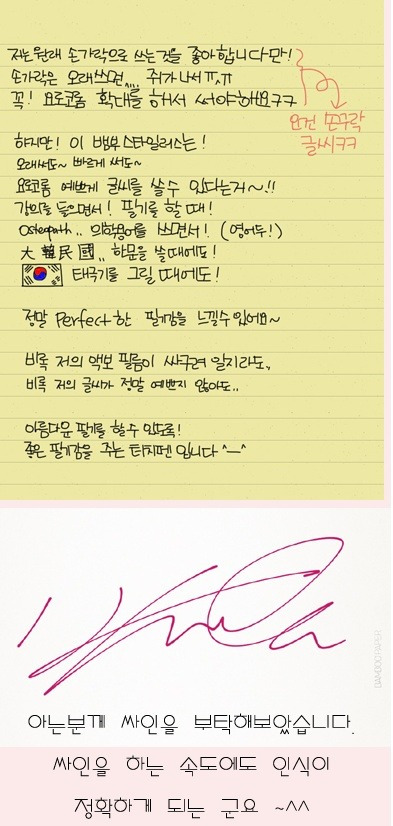 저는 원래 손가락으로 쓰는것을 좋아합니다만!
손가락은 오래쓰면,,,, 쥐가나서 ㅠ,ㅠ
꼭! 요로코롬 확대를 해서 써야해요ㅋㅋ
요건 손구락
글씨ㅋㅋ
하지만! 이 뱀부스타일러스는!
오래써도~ 빠르게 써도~
요로코롬 예쁘게 글씨를 쓸수 있다는거~!!
강의를 들으면서! 필기를 할 때!
Osteopath.. 의학용어를 쓰면서! (영어두!)
大 韓 民 國.. 한문을 쓸때에도!
태극기를 그릴 때에도!
정말 Perfect한 필기감을 느낄수 있어요~
비록 저의 액보 필름이 싸구려 일지라도..
비록 저의 글씨가 정말 예쁘지 않아도..
아름다운 필기를 할수 있도록!
좋은 필기감을 주는 터치펜 입니다 ^―^
아는분께 싸인을 부탁해보았습니다.
싸인을 하는 속도에도 인식이
정확하게 되는 군요 ~^^